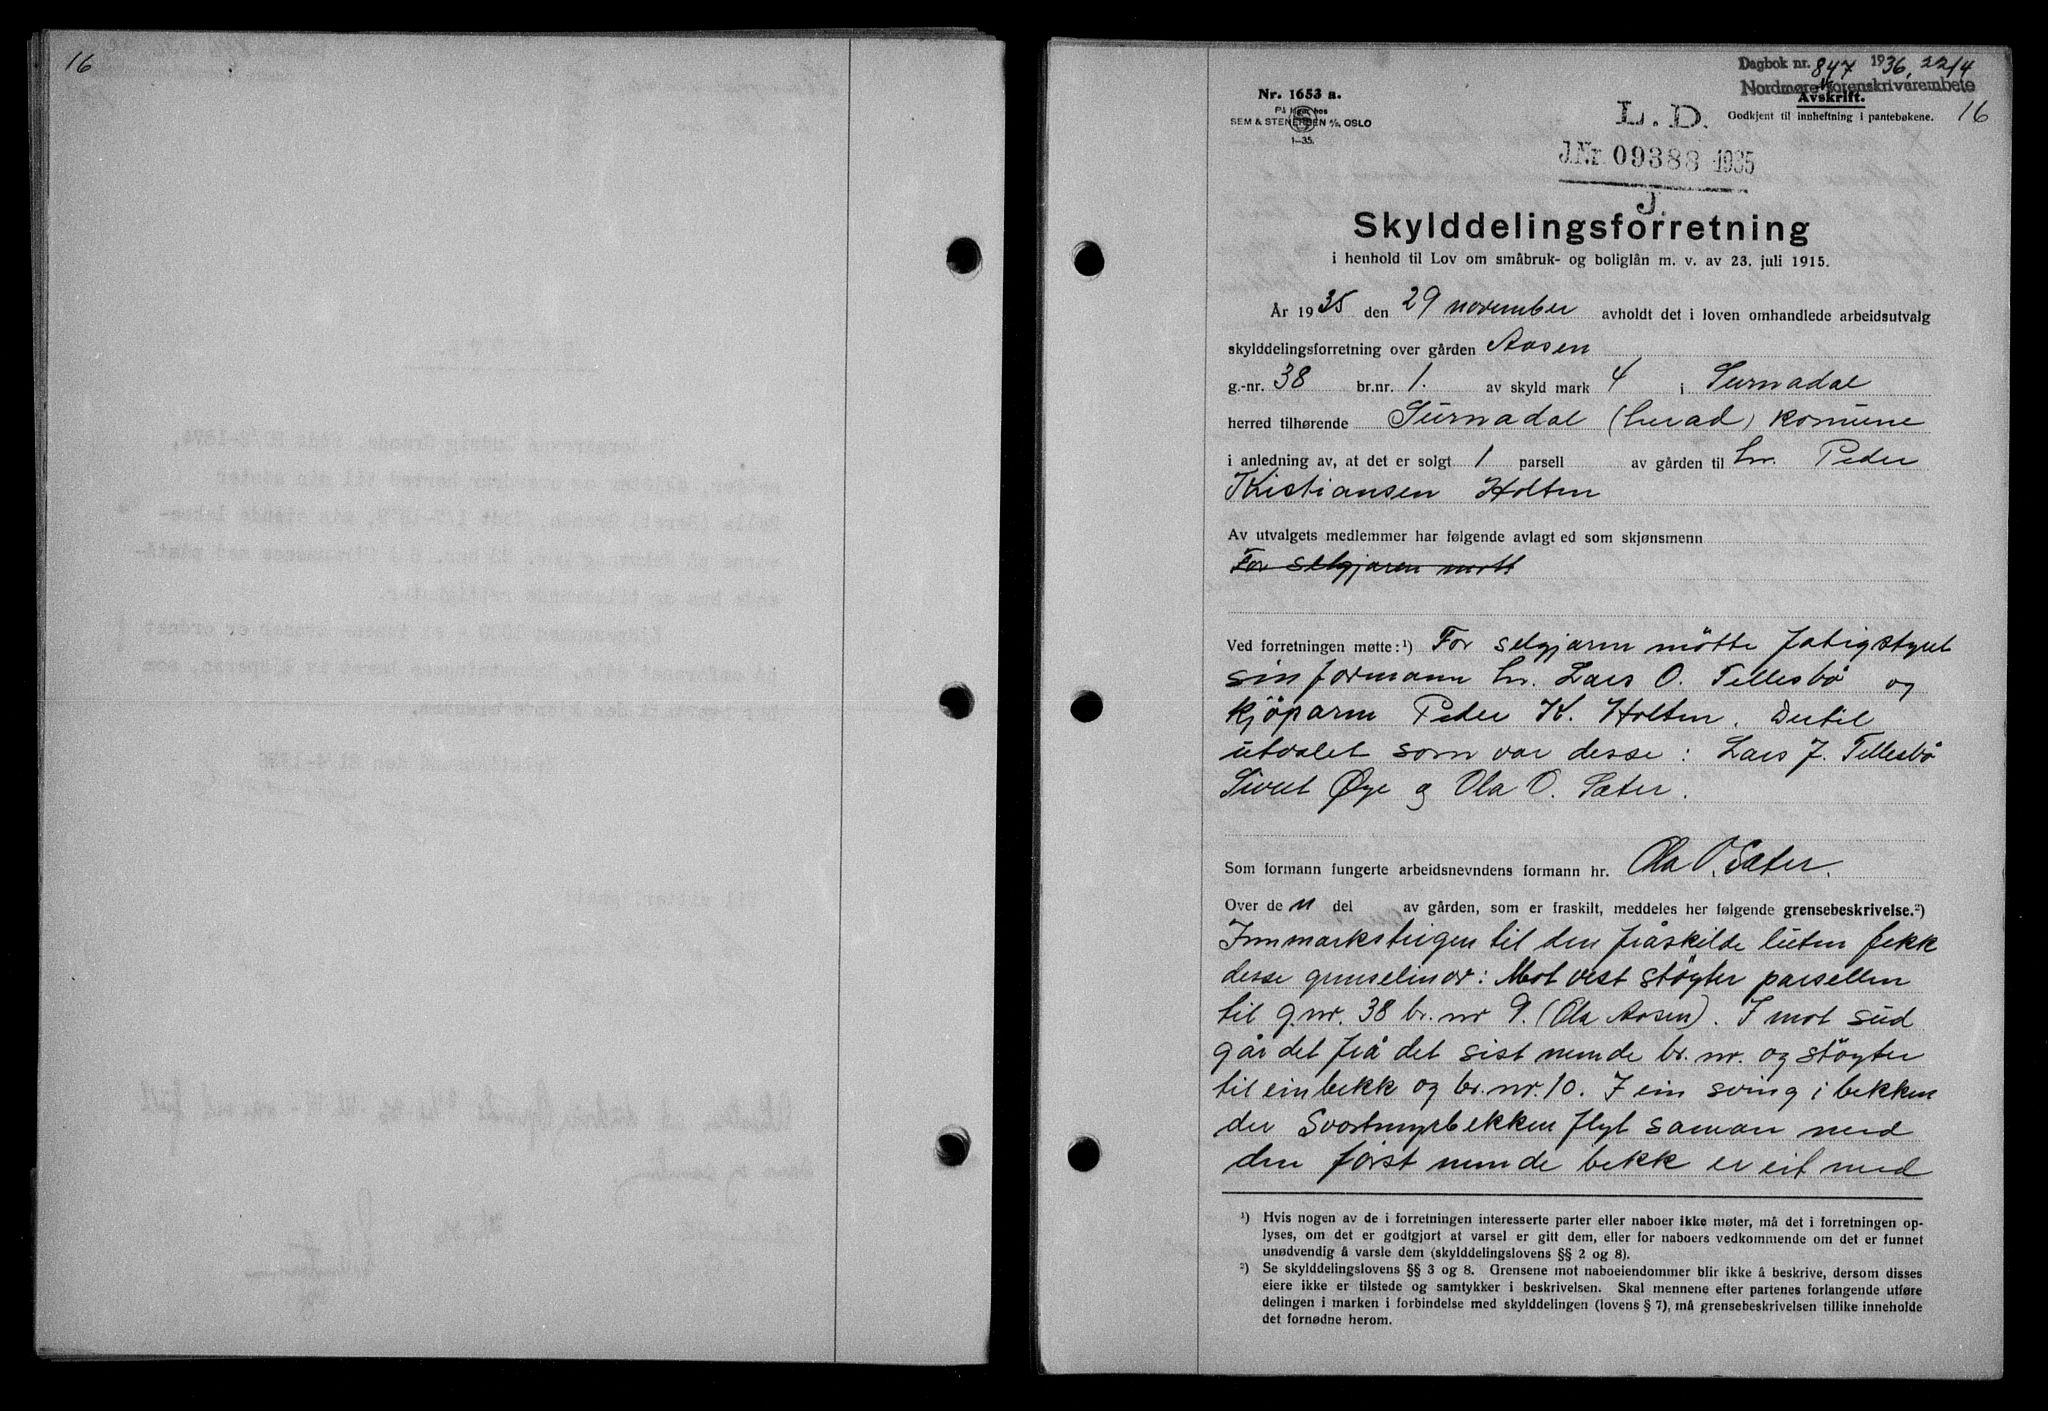 16
Dagbok nr. 847 1936, 22/4
Nordmøre sorenskrivarembete
Nr. 1653 a.
Avskrift.
På lager hos
SEM & STENERSEN A/S, OSLO
1—35.
L. D.
Godkjent til innheftning i pantebøkene.
16
J.Nr. 09388 1935
J.
Skylddelingsforretning
i henhold til Lov om småbruk- og boliglån m. v. av 23. juli 1915.
År 1935 den 29 november avholdt det i loven omhandlede arbeidsutvalg
skylddelingsforretning over gården Aasen
g.-nr. 38 br.nr. 1. av skyld mark 4 i Surnadal
herred tilhørende Surnadal (herad) komune
i anledning av, at det er solgt 1 parsell av gården til hr. Peder
Kristiansen Holten
Av utvalgets medlemmer har følgende avlagt ed som skjønsmenn
For selgjaren mött
Ved forretningen møtte:¹) For selgjarn møtte fatigstyret
sin formann hr. Lars O. Tellesbö og
kjöparn Peder K. Holten. Dertil
utvalet som var desse: Lars J. Tellesbö
Sivert Øye og Ola O. Sæter.
Som formann fungerte arbeidsnevndens formann hr. Ola O. Sæter.
Over den del av gården, som er fraskilt, meddeles her følgende grensebeskrivelse.²)
Innmarksteigen til den fråskilde luten fekk
desse grenselinor: Mot vest støyter parsellen
til g.nr. 38 br. nr 9. (Ola Aasen). I mot sud
går det frå det sist nemde br. nr. og støyter
til ein bekk og br. nr. 10. I ein sving i bekken
der Svartmyrbekken flyt saman med
den först nemde bekk er eit med
¹) Hvis nogen av de i forretningen interesserte parter eller naboer ikke møter, må det i forretningen op-
lyses, om det er godtgjort at varsel er gitt dem, eller for naboers vedkommende om det er funnet
unødvendig å varsle dem (skylddelingslovens §§ 2 og 8).
²) Se skylddelingslovens §§ 3 og 8. Grensene mot naboeiendommer blir ikke å beskrive, dersom disses
eiere ikke er tilstede og samtykker i beskrivelsen. Skal mennene efter partenes forlangende utføre
delingen i marken i forbindelse med skylddelingen (lovens § 7), må grensebeskrivelsen tillike inneholde
det fornødne herom.